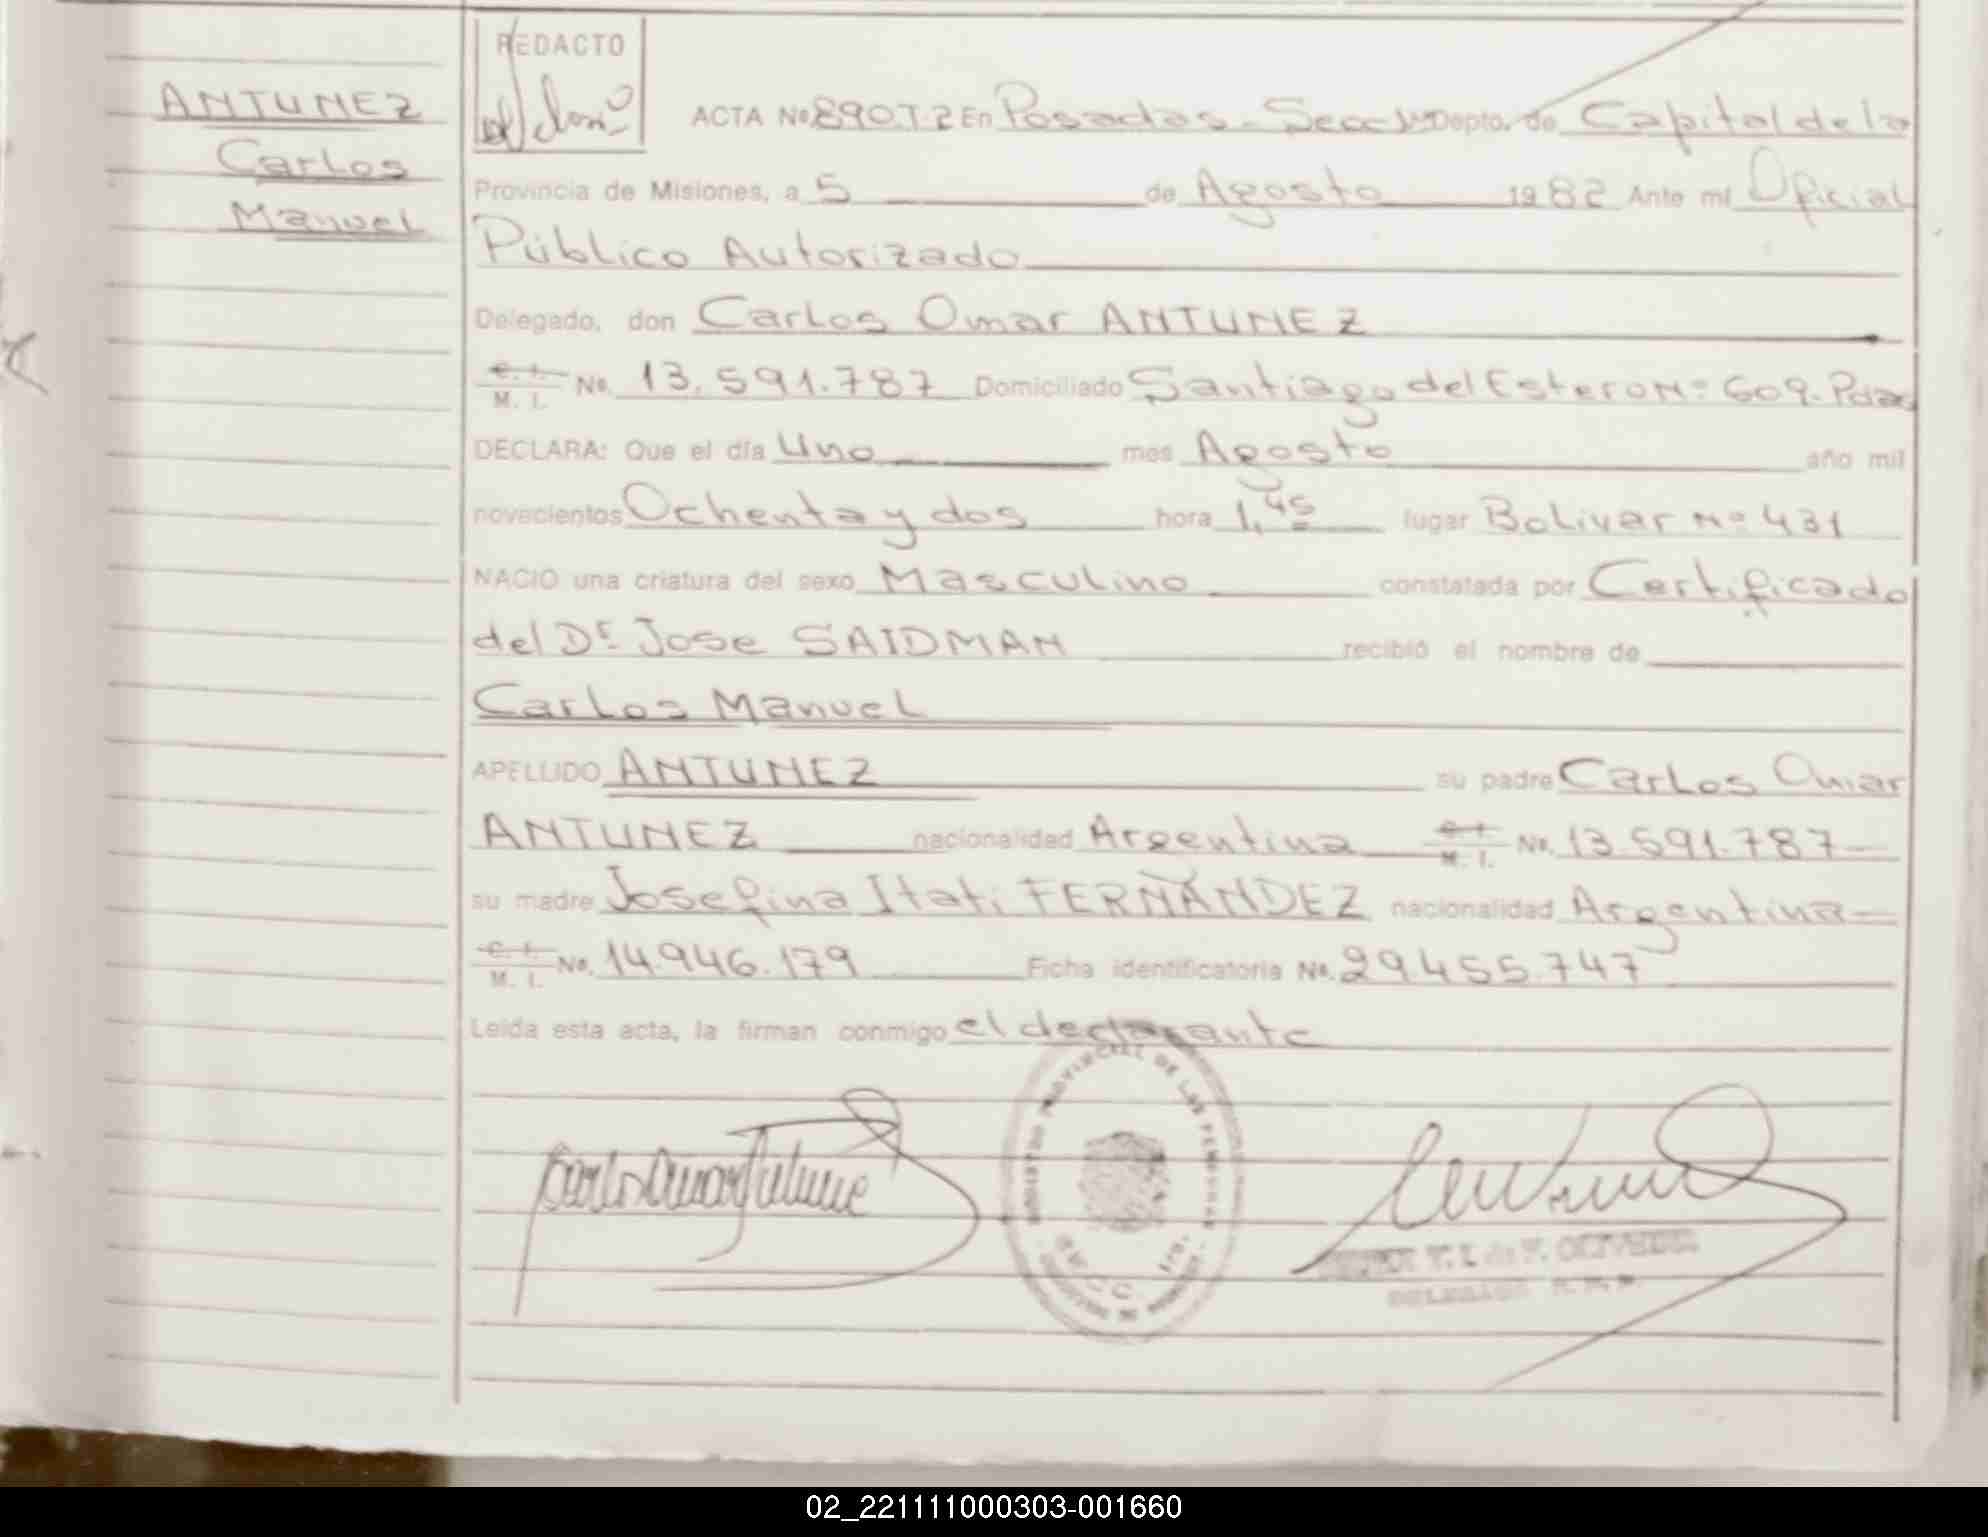 ANTUNEZ
Carlos
Manuel
REDACTO
ACTA No 890.T.2 En Posadas - Secc Depto. de Capital de la
Provincia de Misiones, a 5 de Agosto 1982 Ante mí Oficial
Público Autorizado
Delegado, don Carlos Omar ANTUNEZ
C. I.
M. I. No. 13.591.787 Domiciliado Santiago del Estero Nº 609. Pdas
DECLARA: Que el día Uno mes Agosto año mil
novecientos Ochenta y dos hora 1,45 lugar Bolivar Nº 431
NACIO una criatura del sexo Masculino constatada por Certificado
del Dr. Jose SAIDMAN recibió el nombre de
Carlos Manuel
APELLIDO ANTUNEZ su padre Carlos Omar
ANTUNEZ nacionalidad Argentina C. I.
M. I. No. 13.591.787
su madre Josefina Itati FERNÁNDEZ nacionalidad Argentina
C. I.
M. I. No. 14.946.179 Ficha identificatoria No. 29.455.747
Leída esta acta, la firman conmigo el declarante
PROVINCIAL DE LAS PERSONAS
02_221111000303-001660